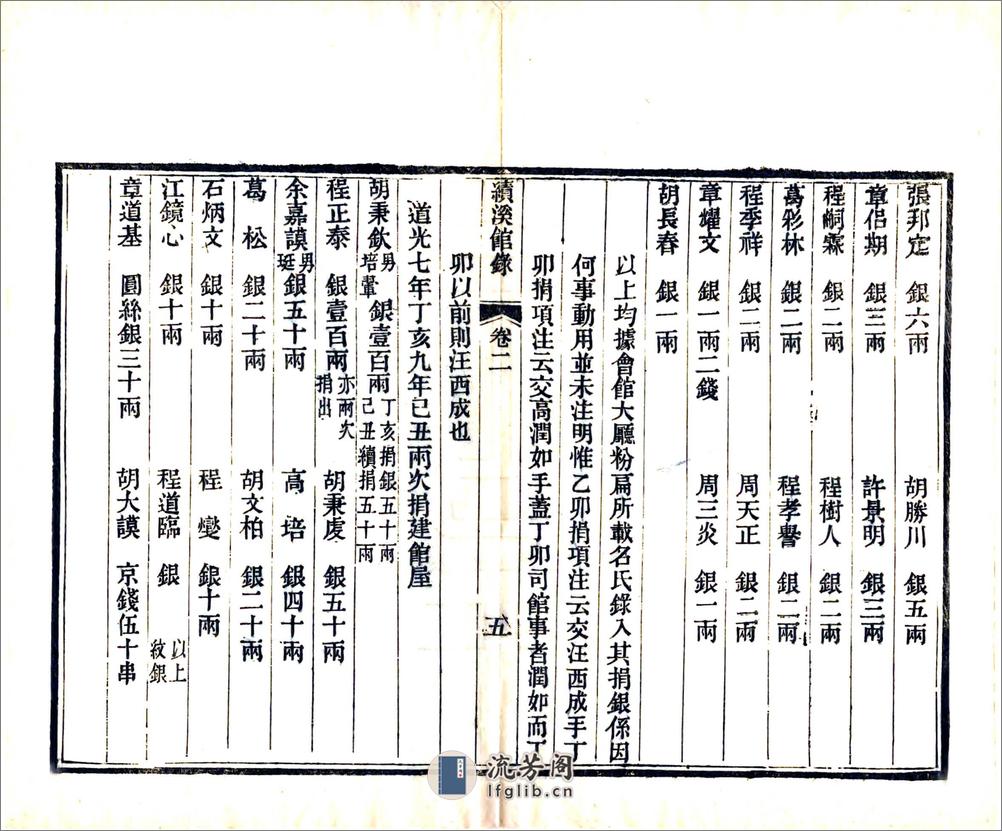 張邦定　銀六兩　胡勝川　銀五兩
章侶期　銀三兩　許景明　銀三兩
程嗣霖　銀二兩　程樹人　銀二兩
葛彩林　銀二兩　程孝譽　銀二兩
程季祥　銀二兩　周天正　銀二兩
章燿文　銀一兩二錢　周三炎　銀一兩
胡長春　銀一兩
以上均據會館大廳粉扁所載名氏錄入其捐銀係因
何事動用並未注明惟乙卯捐項注云交汪西成手丁
卯捐項注云交高潤如手蓋丁卯司館事者潤如而丁
績溪館錄　卷二　五
卯以前則汪西成也
道光七年丁亥九年己丑兩次捐建館屋
胡秉欽男培翬　銀壹百兩丁亥捐銀五十兩己丑續捐五十兩
程正泰　銀壹百兩亦兩次捐出　胡秉虔　銀五十兩
余嘉謨男珽　銀五十兩　高培　銀四十兩
葛松　銀二十兩　胡文柏　銀二十兩
石炳文　銀十兩　程燮　銀十兩
江鏡心　銀十兩　程道臨　銀　以上紋銀
章道基　圓絲銀三十兩　胡大謨　京錢伍十串
流芳阁
lfglib.cn